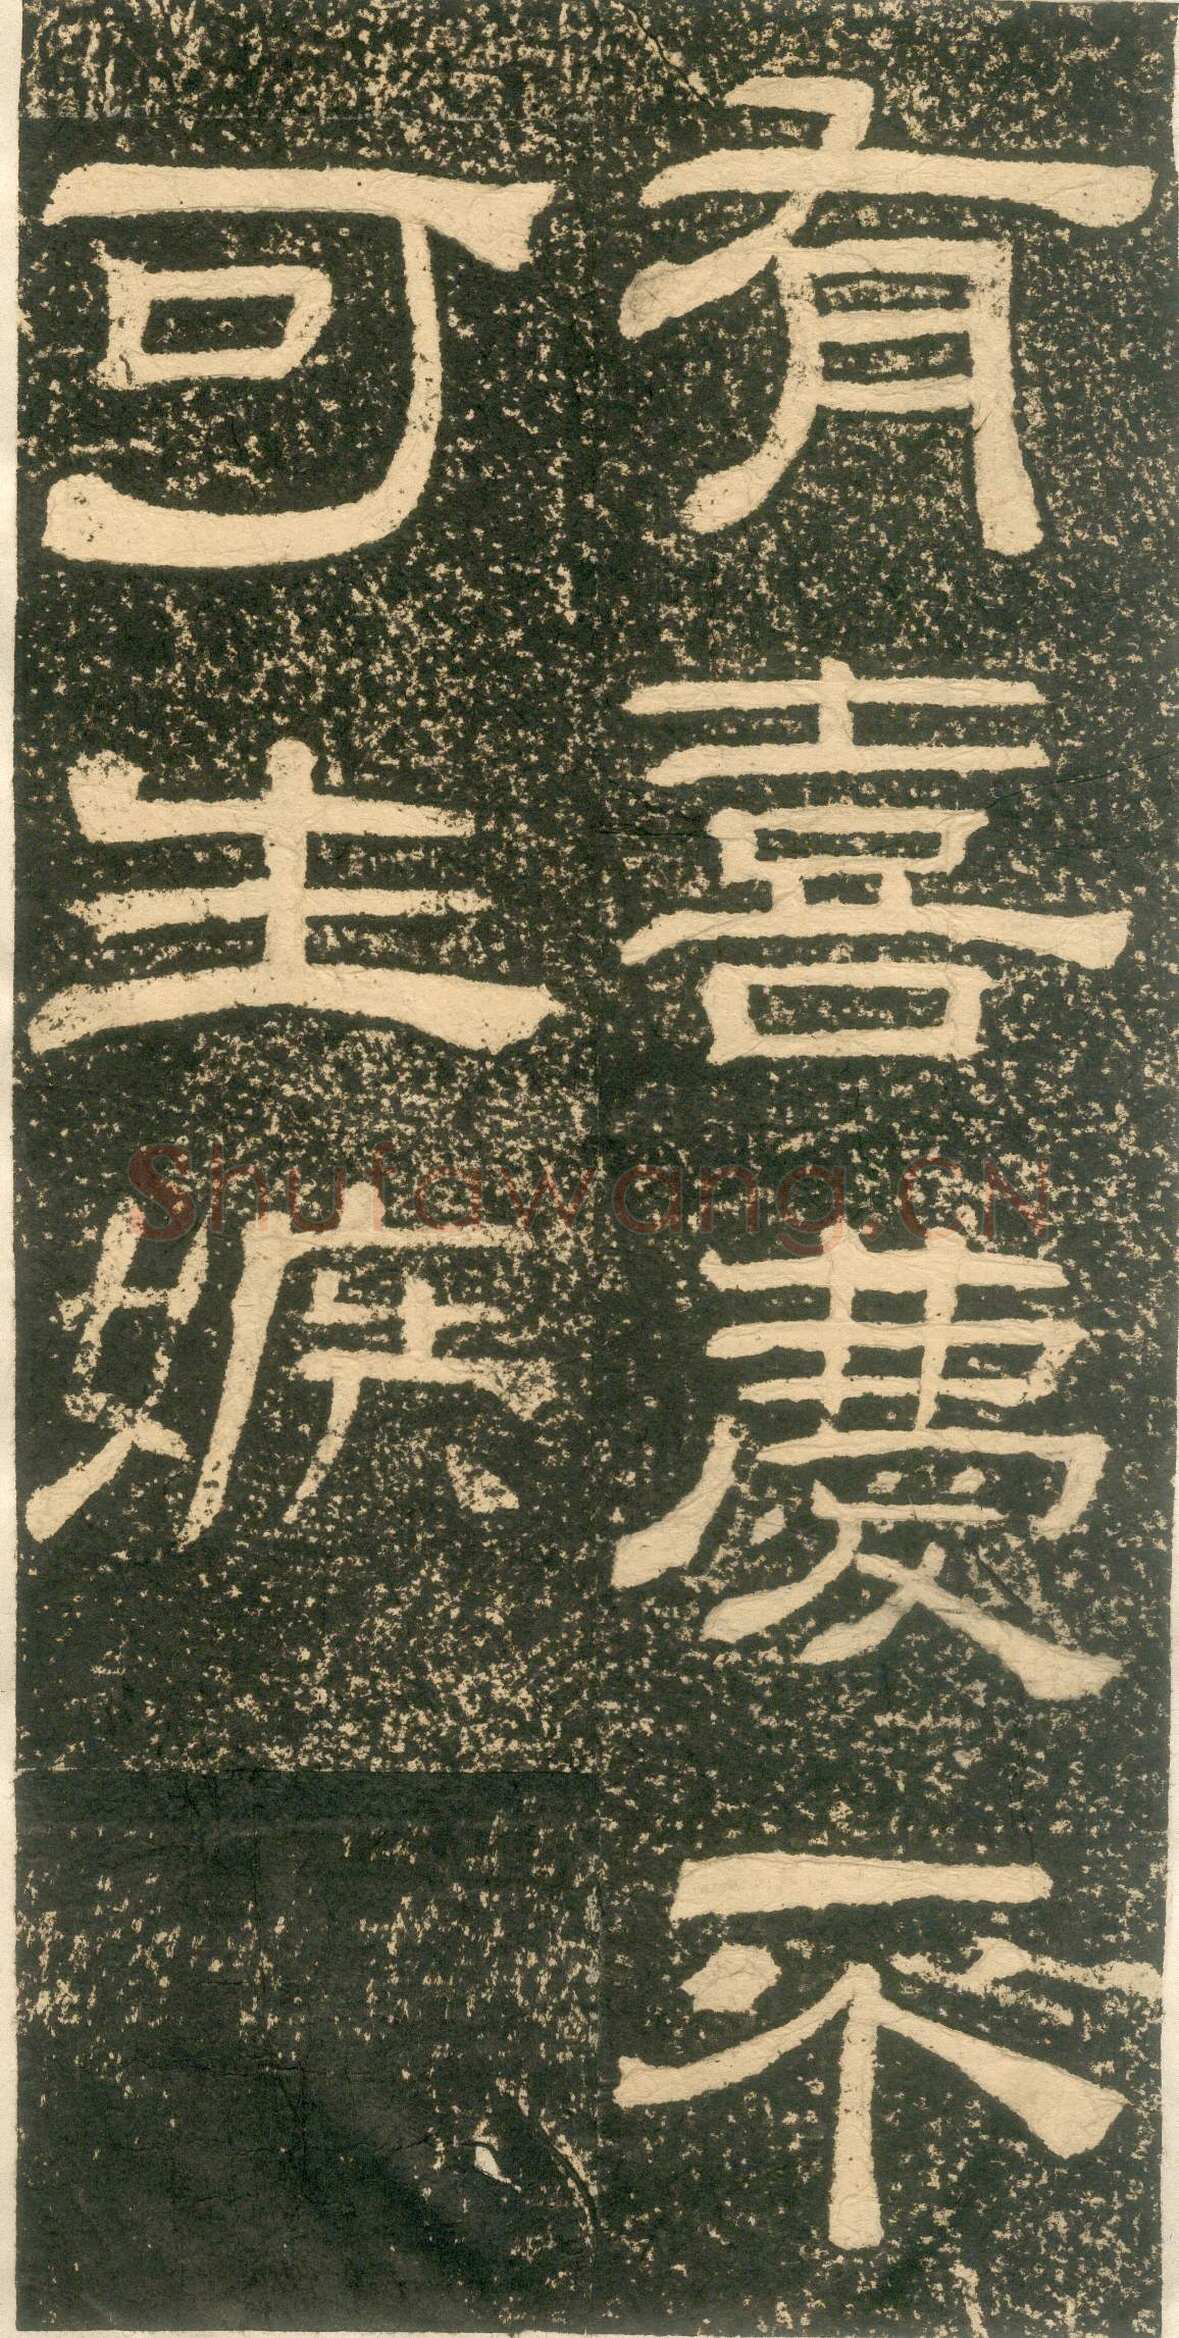 有喜慶不
可生嫉
Shufawang.CN